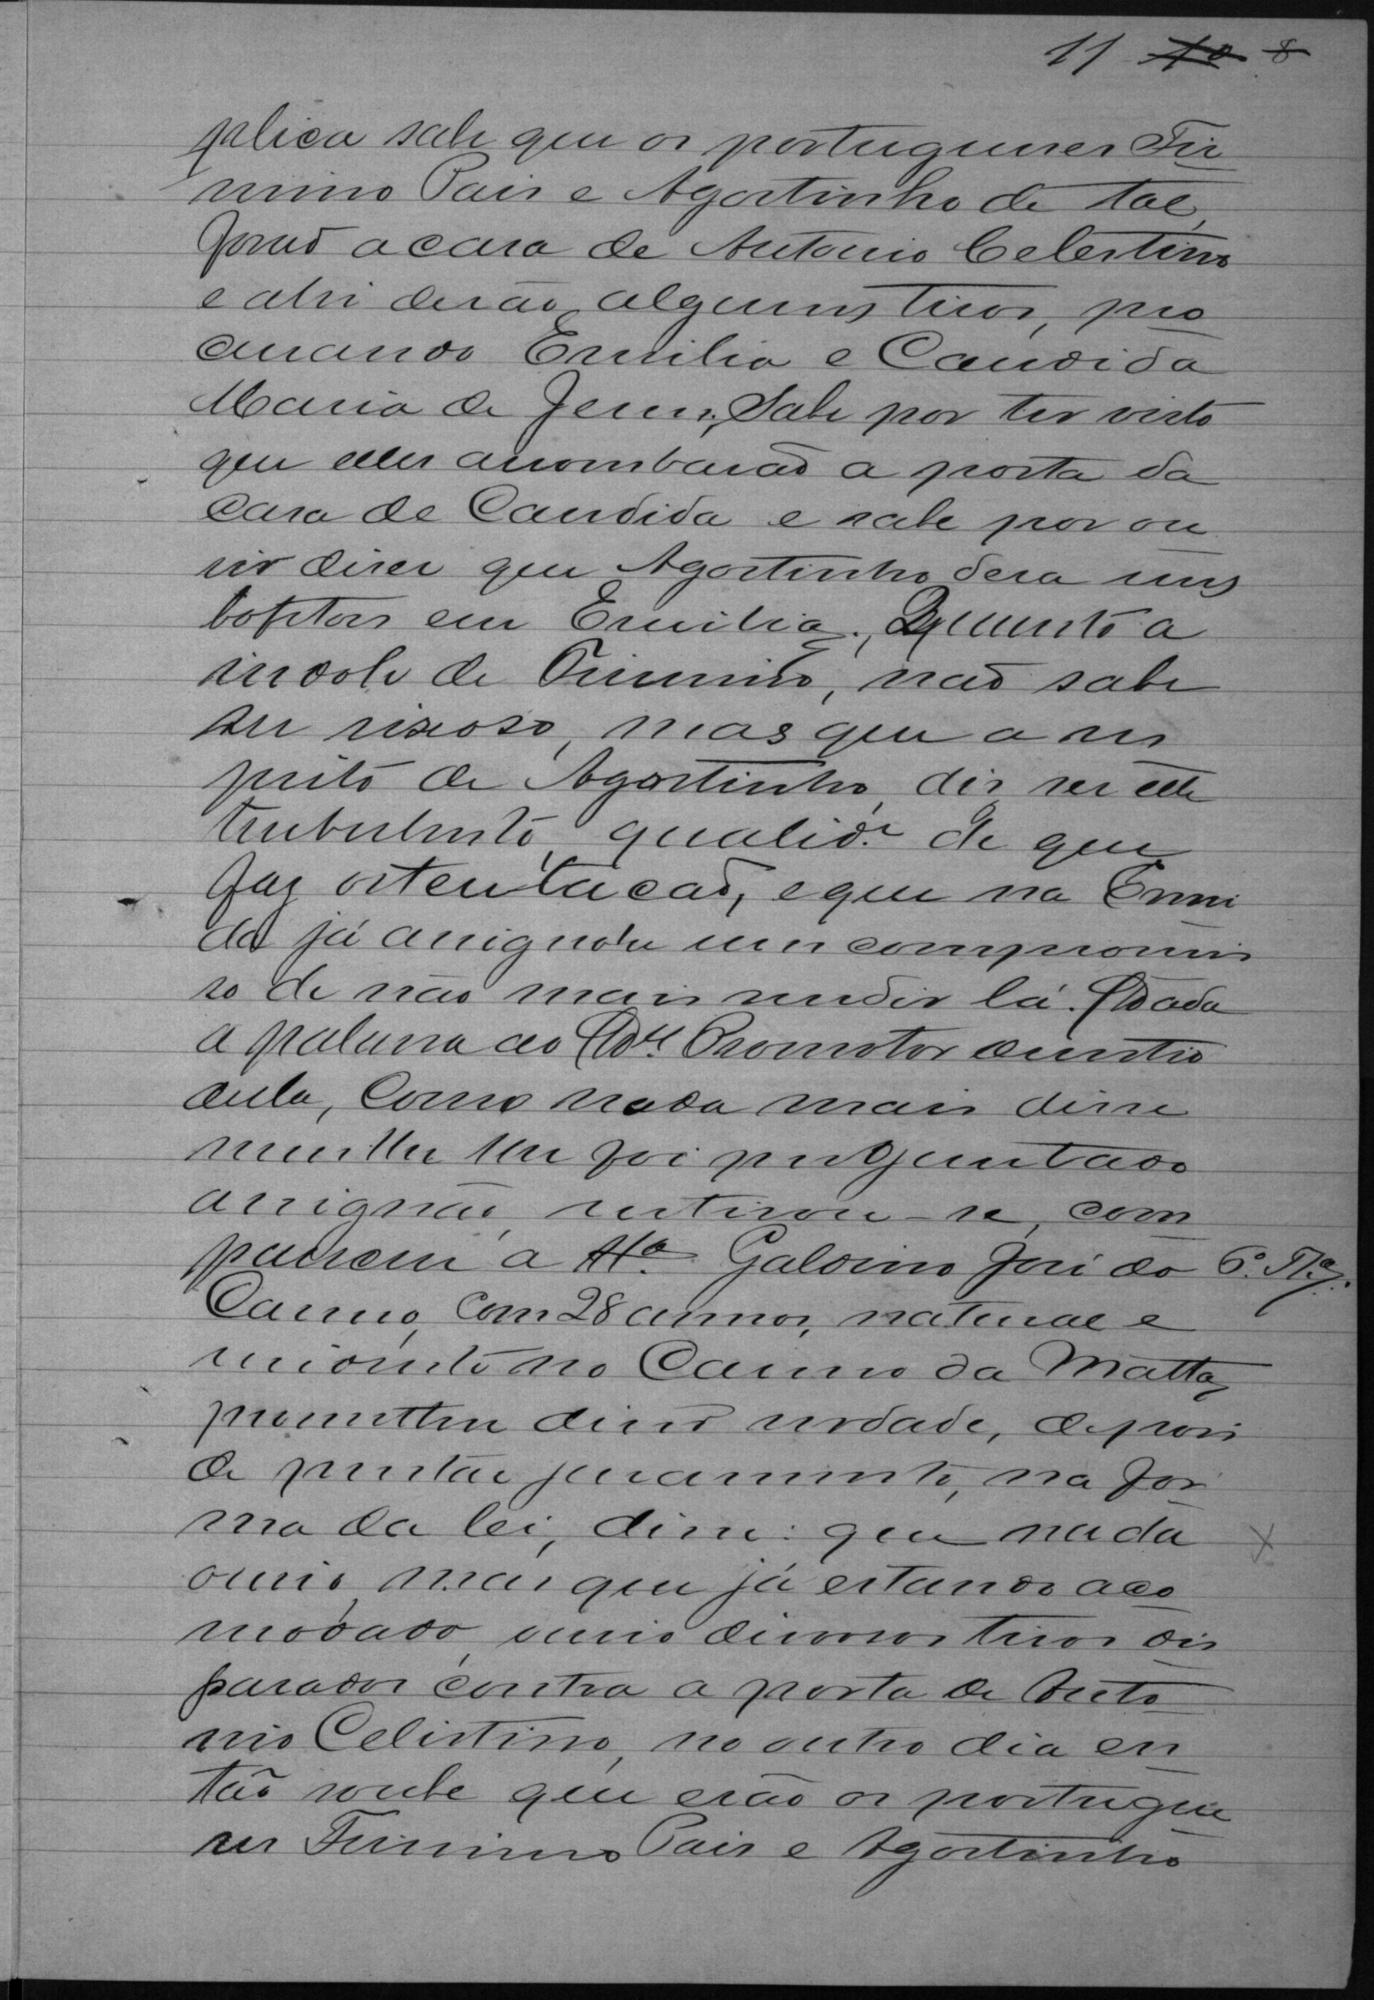 11 10 8
plica sabe que os portugueses Fir
mino Pais e Agostinho de tal,
forão a casa de Antonio Celestino
e ahi derão alguns tiros, pro
curando Emilia e Candida
Maria de Jesus, Sabe por ter visto
que elles arrombarão a porta da
casa de Candida e sabe por ou
vir diser que Agostinho dera uns
bofetões em Emilia. Quanto a
indole de Firmino, não sabe
ser rixoso, mas que a res
peito de Agostinho, dis ser elle
turbulento, qualide de que
faz ostentacão, e que na Ermi
da já assignou um compromis
so de não mais residir lá. Dada
a palavra ao Dr. Promotor
dula, Como nada mais disse
nem lhe foi preguntado
assignão, retirou-se, com
pareceu a Ta. Galdino José do 6ª Ta.
Carmo, com 28 annos, natural e
residente no Carmo da Matta,
prometteu diser verdade, depois
de prestar juramento, na for
ma da lei, disse: que nada
ouvio, mas que já estando aco
modado, ouvio diversos tiros dis
parados contra a porta de Anto
nio Celistino, no outro dia en
tão soube que erão os portugue
ses Firmino Pais e Agostinho